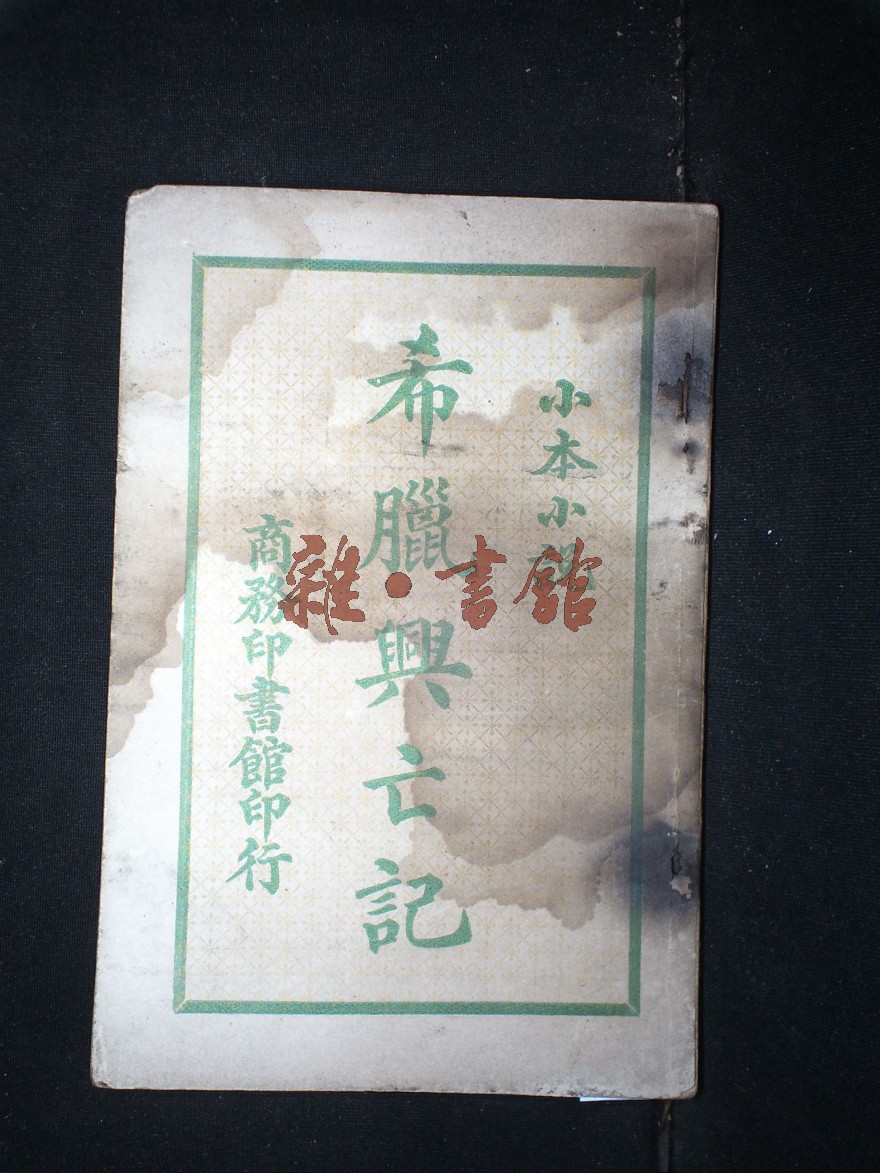 小本小說
希臘興亡記
商務印書館印行
雜·書館